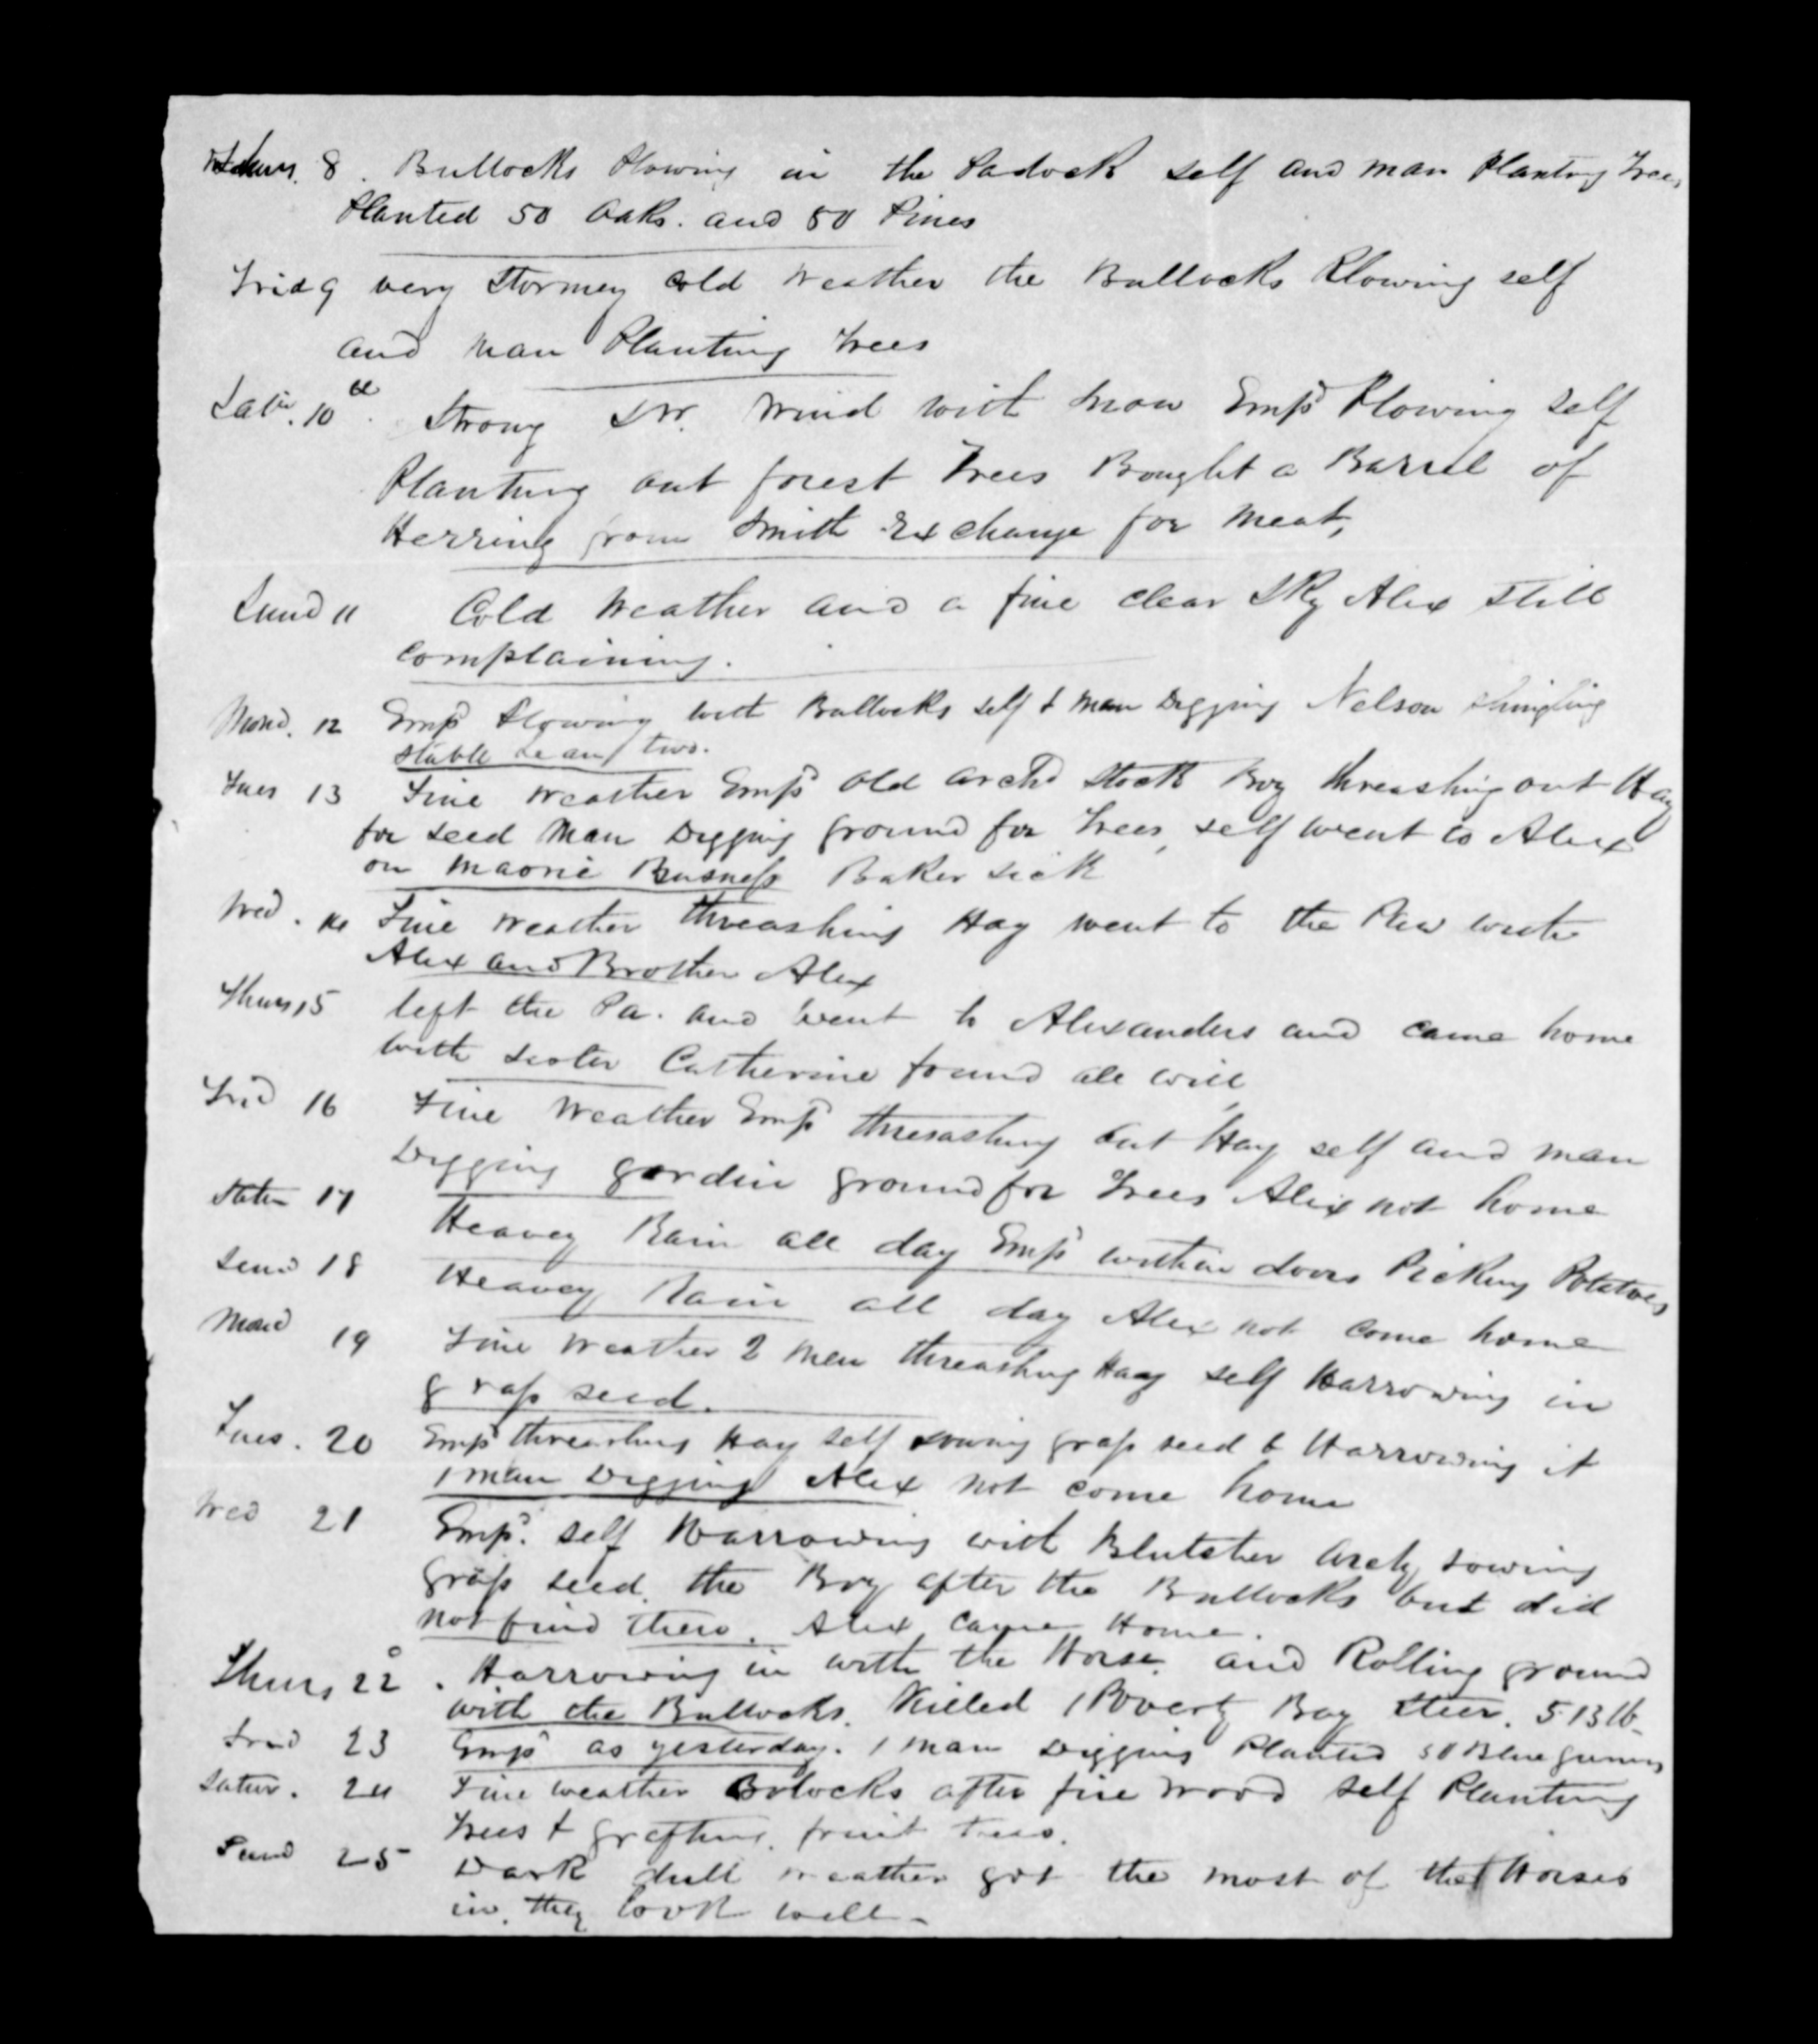 Thurs. 8. Bullocks Plowing in the Padock self and man Planting Trees
Planted 50 Oaks. and 50 Pines
Frid 9 very Stormey Cold Weather the Bullocks Plowing self
and Man Planting Trees
Satr. 10th. Strong SW. Wind with Snow Empd Plowing self
Planting out forest Trees Bought a Barrel of
Herring from Smith Exchange for Meat,
Sund 11 Cold Weather and a fine clear Sky Alex still
complaining.
Mond. 12 Empd Plowing with Bullocks self & man Digging Nelson Shingling
Stable Lean two.
Tues 13 Fine Weather Empd Old Archd Stock Boy threashing out Hay
for seed Man Digging ground for Trees, self went to Alex
on Maorie Busness Baker sick
Wed. 14 Fine Weather threashing Hay went to the Paw with
Alex and Brother Alex
Thurs 15 left the Pa. and went to Alexanders and came home
with sister Catherine found all well
Frid 16 Fine Weather Empd threashing out Hay self and man
Digging gardin ground for Trees Alex not home
Satur 17 Heavey Rain all day Empd within doors Picking Potatoes
Sund 18 Heavey Rain all day Alex not come home
Mond 19 Fine Weather 2 Men threashing Hay self Harrowing in
grass seed.
Tues. 20 Empd threashing Hay self sowing grass seed & Harrowing it
1 man Digging Alex not come home
Wed 21 Empd. self Harrowing with Blutcher Archy sowing
grass seed. the Boy after the Bullocks but did
not find them. Alex came Home.
Thurs 22. Harrowing in with the Horse and Rolling ground
with the Bullocks. Killed 1 Poverty Bay Steer. 513 lb
Frid 23 Empd as yesterday. 1 man Digging Planted 50 Blue gumms
Satur. 24 Fine weather Bolocks after fire wood self Planting
Trees & grafting fruit trees.
Sund 25 Dark dull weather got the most of the Horses
in. they look well.